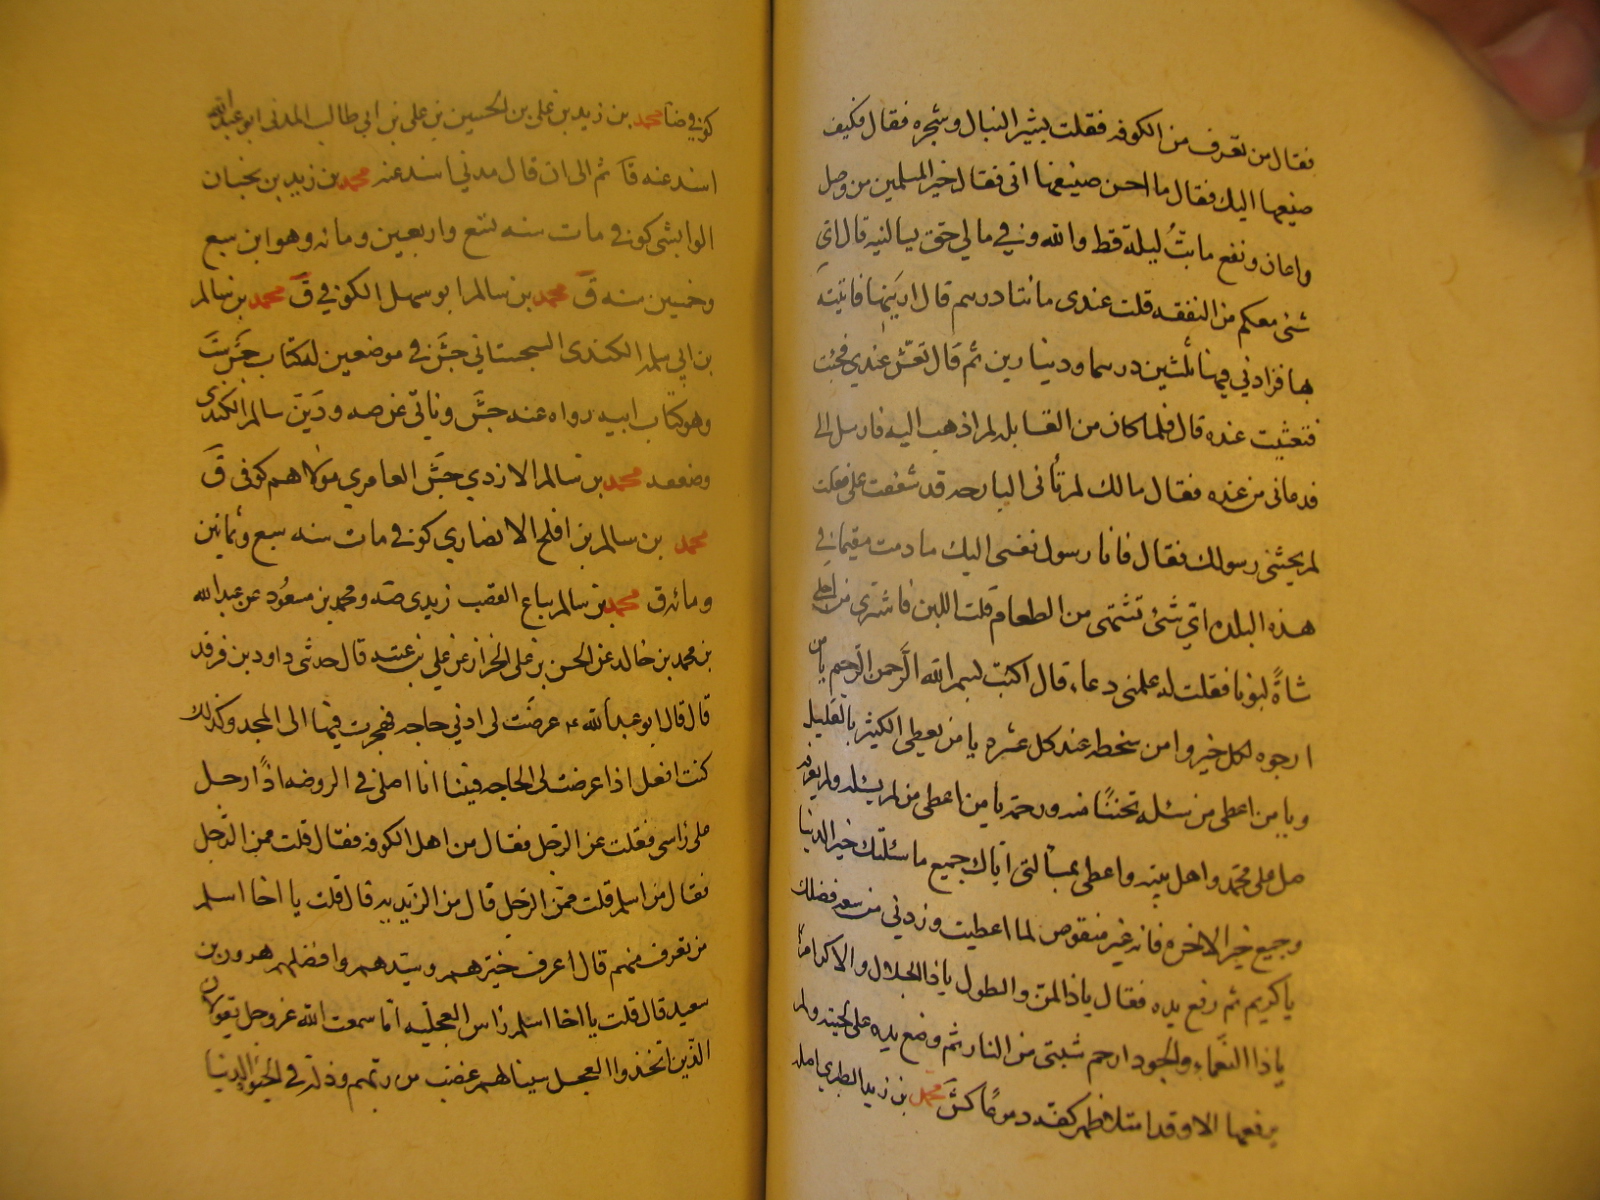 فقال من تعرف من الكوفه فقلت بشير النبال وشجره فقال فكيف
صنيعها اليك فقال ما احسن صنيعها اتى فقال خير المسلمين من وصل
واعان ونفع ما بتُّ ليلة قط والله وفي مالي حق يسالنيه قال اي
شئ معكم من النفقه قلت عندى مائتا درهم قال ارنيها فاتيته
بها فزادني فيها ثلثين درهما ودينارين ثم قال تعش عندي فجئت
فتعشيت عنده قال فلما كان من القابله لم اذهب اليه فارسل الى
فدعانى من عنده فقال مالك لم تأتى البارحه قد شفقت على فقلت
لم يجئنى رسولك فقال فانا رسول نفسى اليك ما دمت مقيما فى
هذه البلده اي شئ تشتهى من الطعام قلت اللبن فاشترى من اجلى
شاةً لبونا فقلت له علمنى دعاء قال اكتب بسم الله الرحمن الرحيم يا من
ارجوه لكل خير وامن سخطه عند كل عثره يا من يعطى الكثير بالقليل
ويا من اعطى من سئله تحننًا منه ورحمة يا من اعطى من لم يسئله ولم يعرفه
صل على محمد واهل بيته واعطى بمسألتى اياك جميع ما سئلتك خير الدنيا
وجميع خير الاخره فانه غير منقوص لما اعطيت وزدني من سعه فضلك
يا كريم ثم رفع يده فقال يا ذا المن والطول يا ذا الجلال والاكرام
يا ذا النعماء والجود ارحم شيبتى من النار ثم وضع يده على لحيته ولم
يرفعها الا وقد امتلا ظهر كفه دموعا كش محمد بن زيد الطبري اصله
كوفي ضا محمد بن زيد بن على بن الحسين بن على بن ابي طالب المدنى ابو عبدالله
اسند عنه ق ثم الى ان قال مدني اسند عنه محمد بن زيد بن
الوابشى كوفى مات سنه تسع واربعين ومائه وهو ابن سبع
وخمسين سنه ق محمد بن سالم ابو سهل الكوفي ق محمد بن سالم
بن ابي سلمه الكندى السجستاني جش في موضعين له كتاب جش ست
وهو كتاب ابيه رواه عنه جش وياتى عن صه ود ين سالم الكندى
وضعفه محمد بن سالم الازدي جش العامري مولاهم كوفى ق
محمد بن سالم بن افلح الانصاري كوفى مات سنه سبع وثمانين
ومائه ق محمد بن سالم بياع القصب زيدى صه ومحمد بن مسعود عن عبدالله
بن محمد بن خالد عن الحسن بن على الخزاز عن علي بن عقبه قال حدثنى داود بن فرقد
قال قال ابو عبدالله ع عرضت لى الى ربي حاجه فهجرت فيها الى المسجد وكذلك
كنت افعل اذا عرضت لى الحاجه فبينا انا اصلى فى الروضه اذًا رحل
على راسى فقلت عن الرجل فقال من اهل الكوفه فقال قلت ممن الرجل
فقال من اسلم قلت ممن الرجل قال من الزيديه قال قلت يا اخا اسلم
من تعرف منهم قال اعرف خيرهم وسيدهم وافضلهم هرون بن
سعيد قال قلت يا اخا اسلم راس العجليه اما سمعت الله عز وجل يقول ان
الذين اتخذوا العجل سينالهم غضب من ربهم وذلة فى الحيوة الدنيا